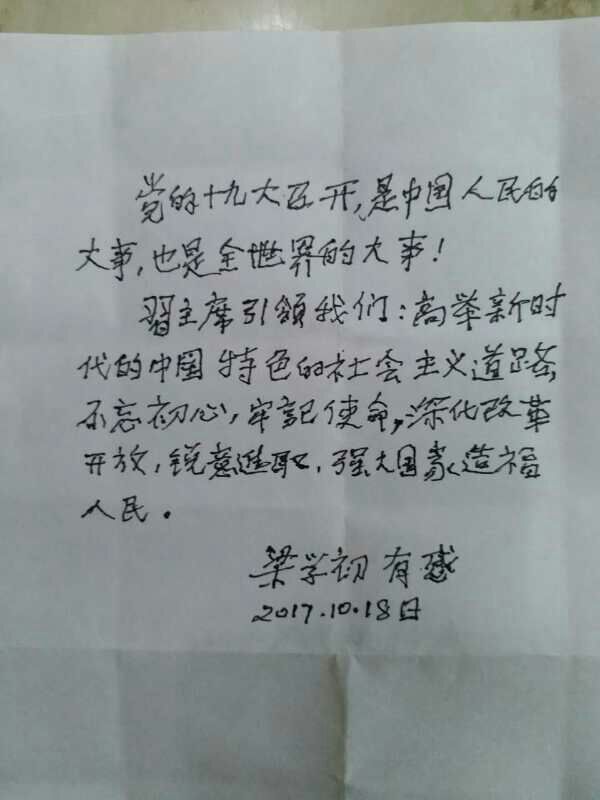 党的十九大召开,是中国人民的
大事,也是全世界的大事!
習主席引領我们:高举新时
代的中国特色的社会主义道路,
不忘初心,牢記使命,深化改革
开放,锐意進取,强大国家造福
人民。
梁学初 有感
2017.10.18日